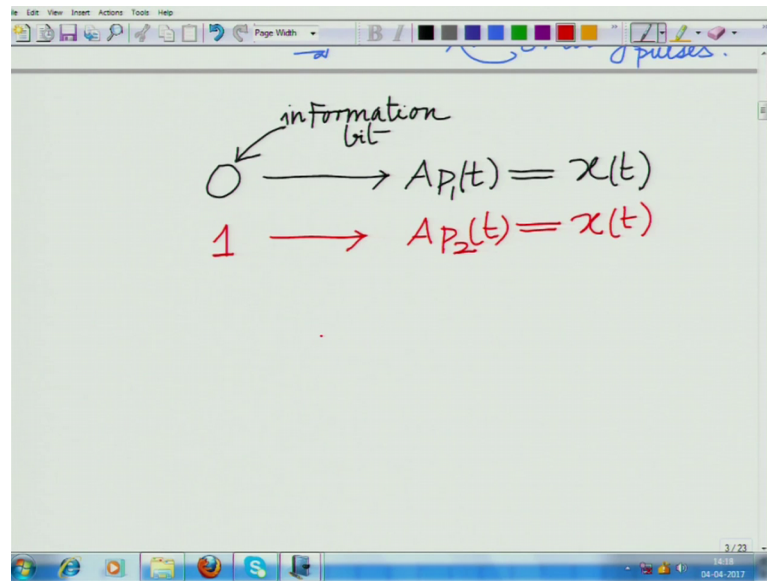 File Edit View Insert Actions Tools Help
Page Width B I
pulses.
information
bit
0 → Ap₁(t) = x(t)
1 → Ap₂(t) = x(t)
3 / 23
14:18
04-04-2017